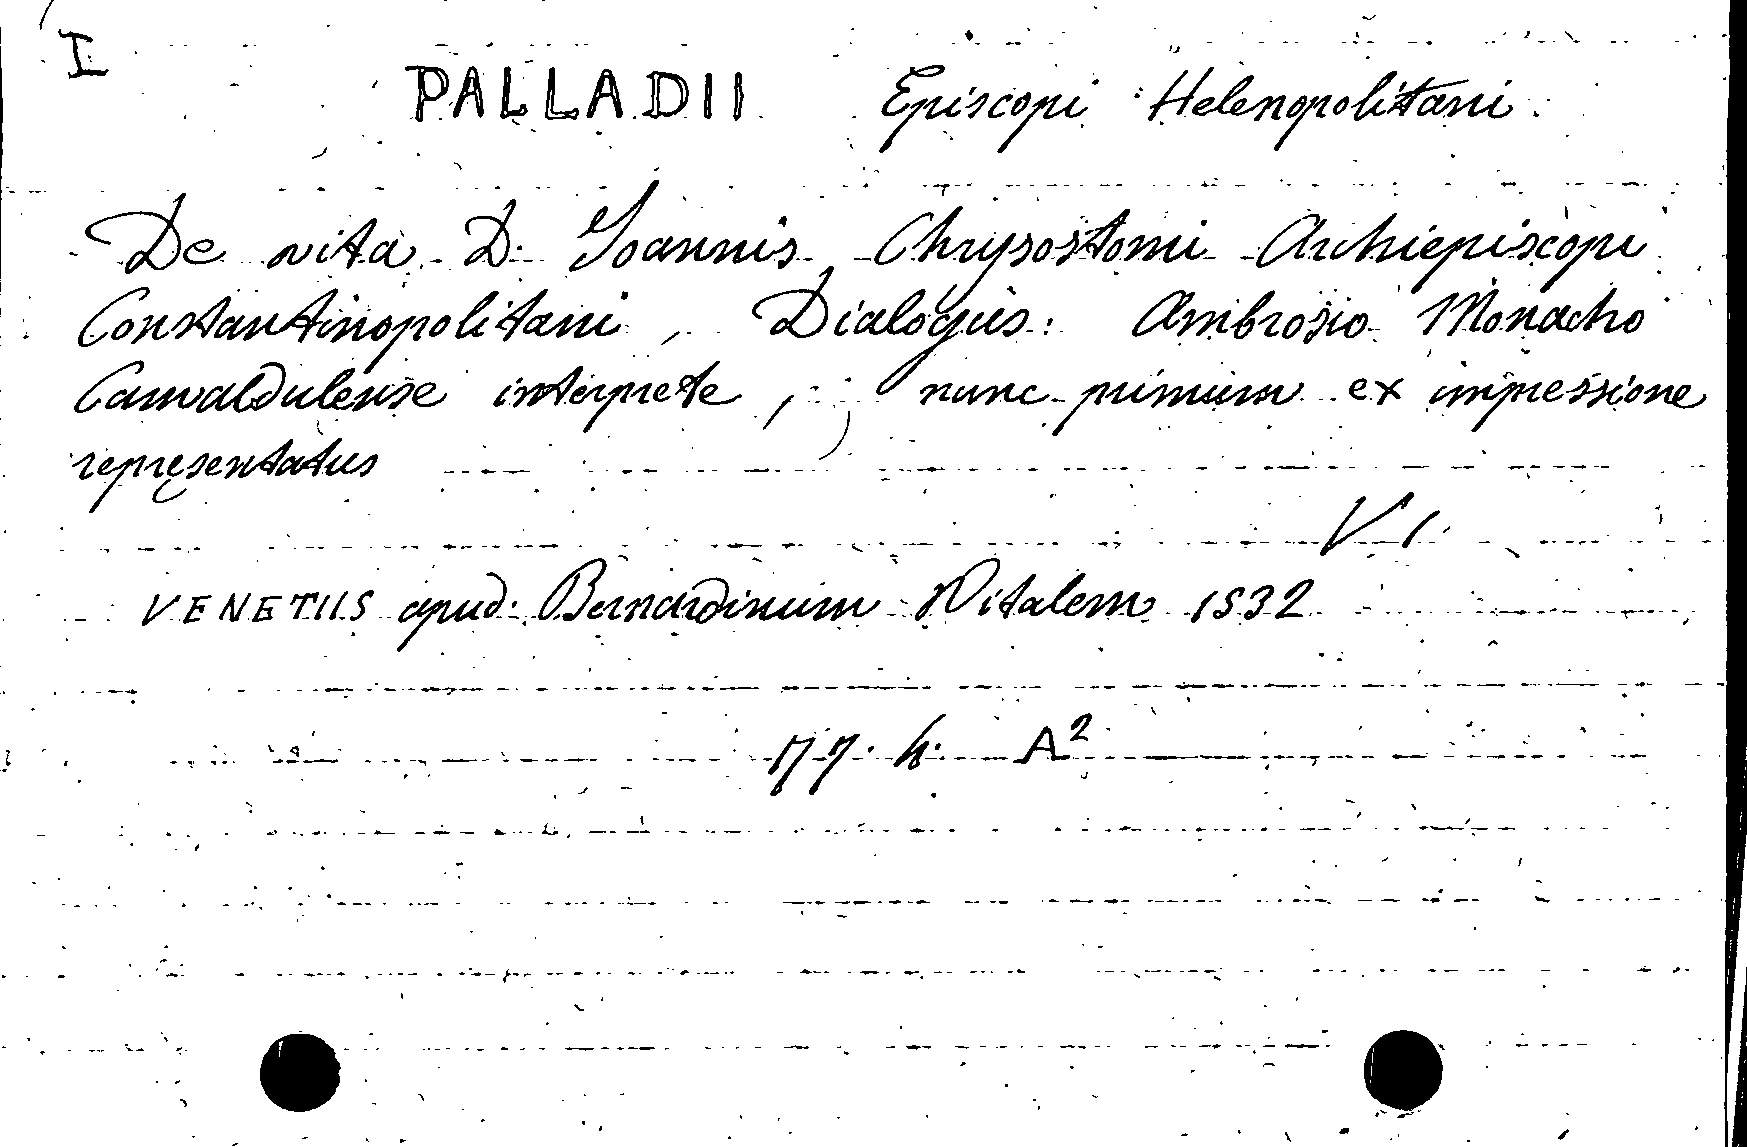 I
PALLADII Episcopi Helenopolitani
De vita D. Joannis Chrysostomi Archiepiscopi
Constantinopolitani, Dialogus: Ambrosio Monacho
Camaldulense interprete, nunc primum ex impressione
representatus
VENETIIS apud Bernardinum Vitalem 1532
77. h. A²